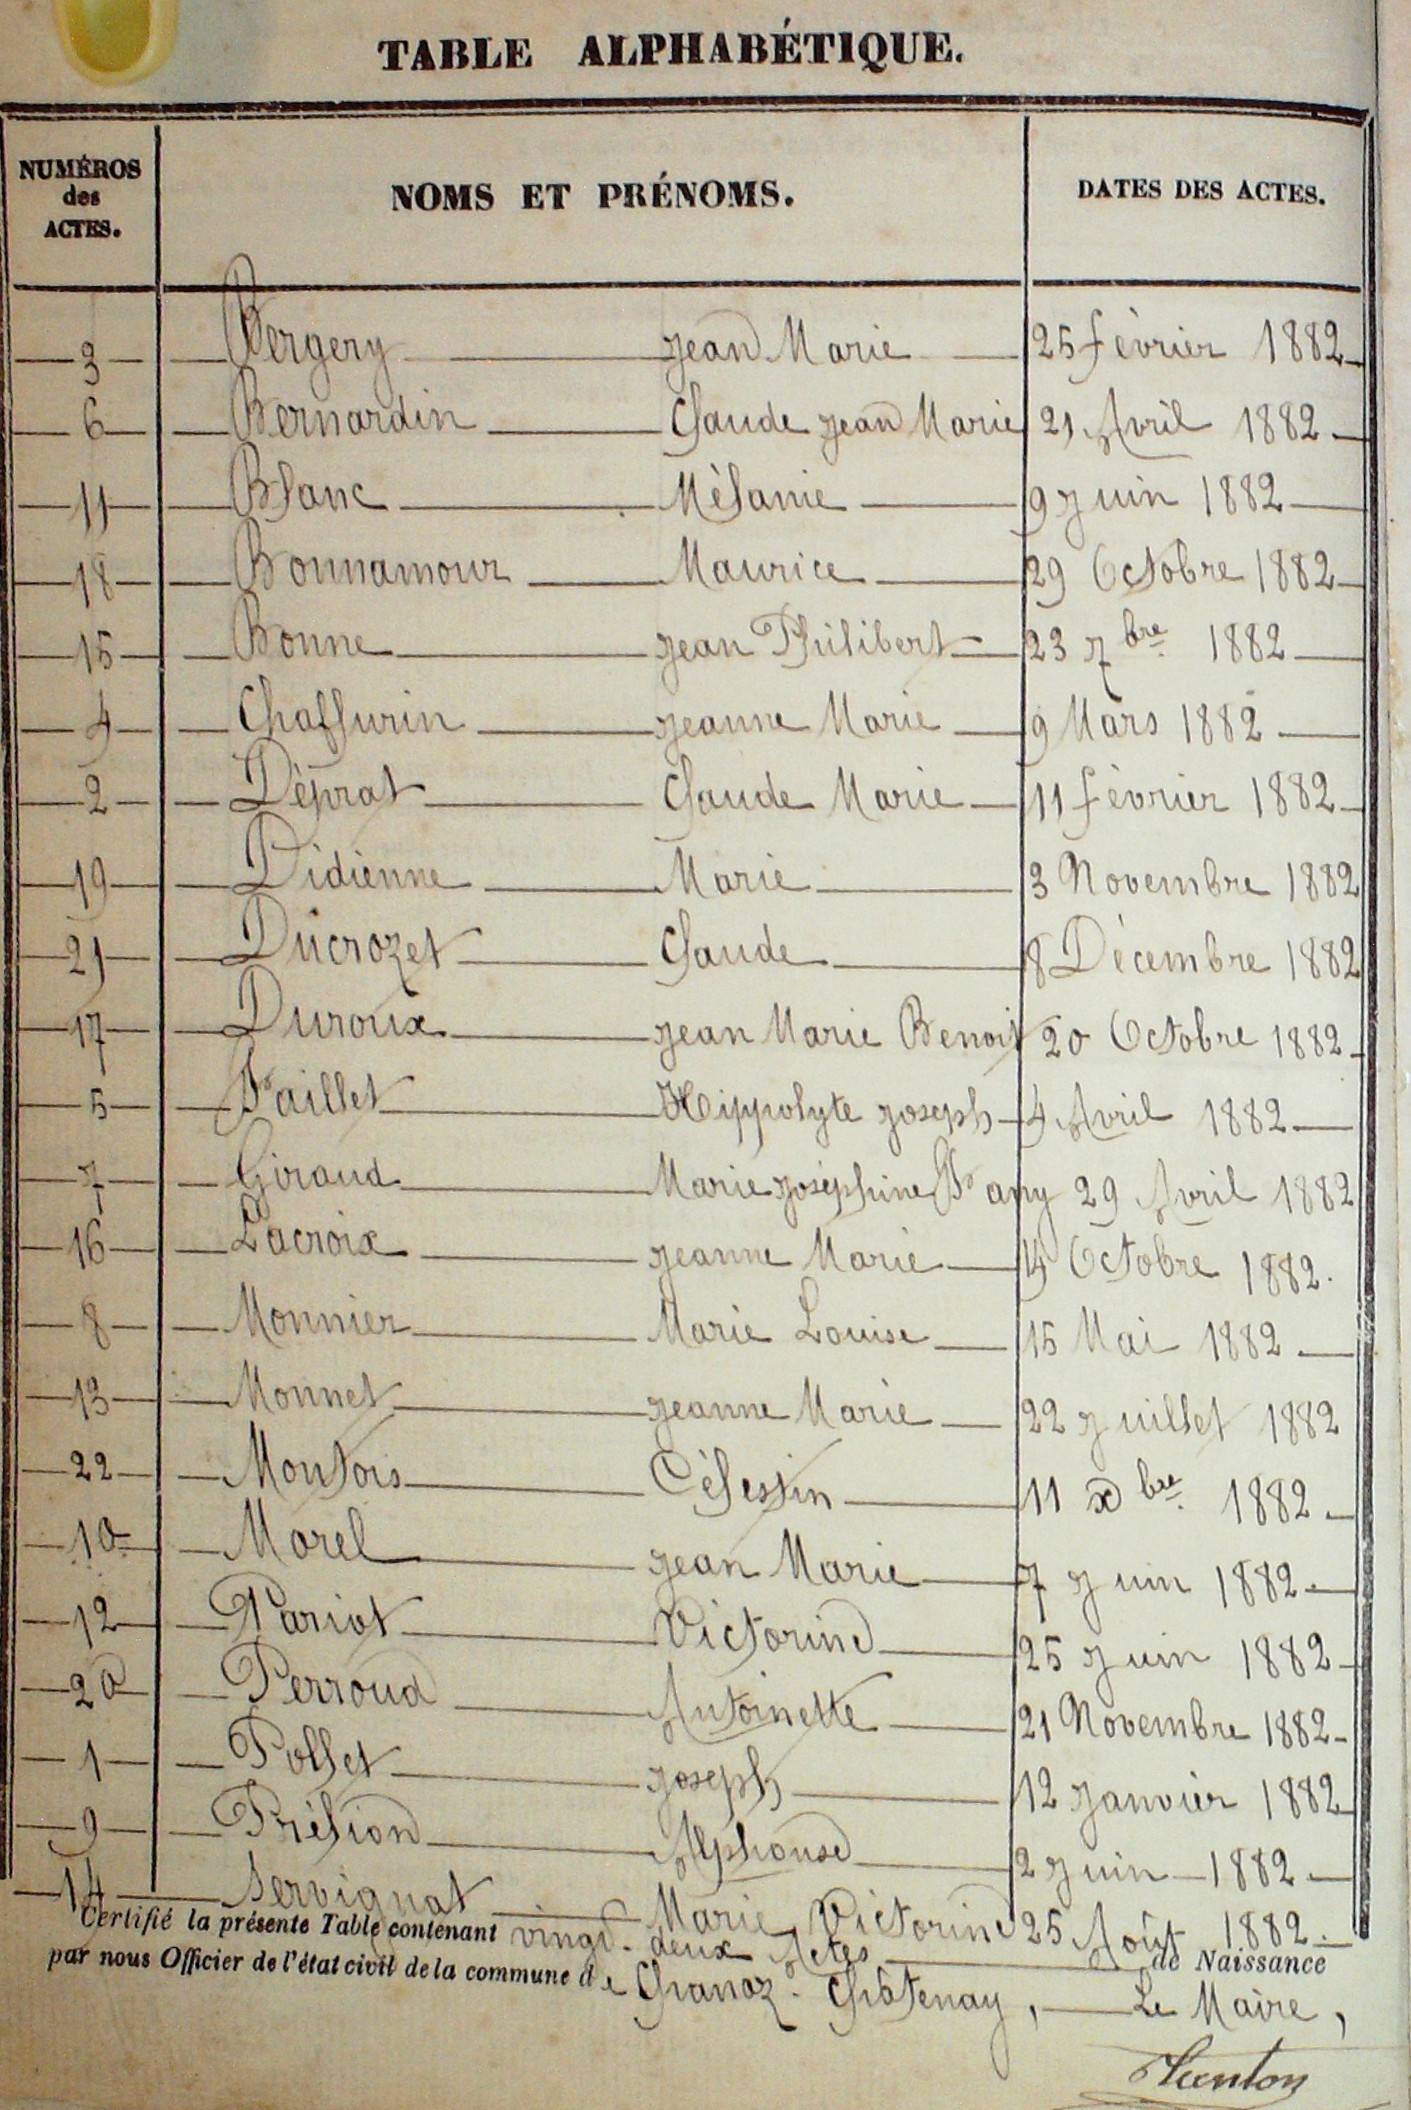 TABLE ALPHABÉTIQUE.
NUMÉROS des ACTES. NOMS ET PRÉNOMS. DATES DES ACTES.
3 Bergery Jean Marie 25 fèvrier 1882
6 Bernardin Claude Jean Marie 21 Avril 1882
11 Blanc Mèlanie 9 Juin 1882
18 Bonnamour Maurice 29 Octobre 1882
15 Bonne Jean Philibert 23 7bre 1882
4 Chaffurin Jeanne Marie 9 Mars 1882
2 Dèprat Claude Marie 11 fèvrier 1882
19 Didienne Marie 3 Novembre 1882
21 Ducrozet Claude 8 Dècembre 1882
17 Duroux Jean Marie Benoit 20 Octobre 1882
5 Faillet Hippolyte Joseph 4 Avril 1882
7 Giraud Marie Josèphine Fany 29 Avril 1882
16 Lacroix Jeanne Marie 14 Octobre 1882.
8 Monnier Marie Louise 15 Mai 1882
13 Monnet Jeanne Marie 22 Juillet 1882
22 Montois Cèlestin 11 xbre 1882
10 Morel Jean Marie 7 Juin 1882
12 Pariot Victorine 25 Juin 1882
20 Perroud Antoinette 21 Novembre 1882
1 Pollet Joseph 12 Janvier 1882
9 Prèlion Alphonse 2 Juin 1882
14 Servignat Marie Victorine 25 Août 1882.
Certifié la présente Table contenant vingt-deux Actes de Naissance
par nous Officier de l'état civil de la commune de Chanoz-Châtenay, Le Maire,